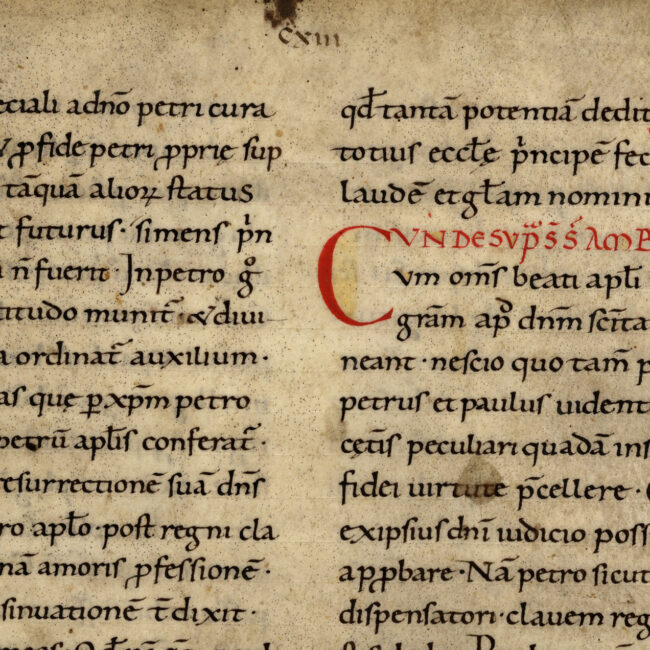 cxiii
eciali adnō petri cura
ꝓfide petri ꝓprię sup
tāquā alioꝝ ſtatus
t futurus· simens pͥn
n̄ fuerit· Inpetro gͦ
titudo munit᷑· & diui
a ordinat᷑ auxilium·
as que ꝑ xp̄m petro
petrū apl̄is conferat᷑·
esurrectionē suā dn̄s
ro apl̄o· poſt regni cla
nā amoris ꝓfessionē·
sinuationē t̄ dixit·
qd̄ tantā potentiā dedit
totius eccl̄ę pͥncipē fec
laudē et gl̄am nomini
VNDE SVP͂S S͂ AMB
Cum om̄s beati apl̄i
gr̄am apͩ dn̄m sc̄ita
neant· nescio quo tam̄ p
petrus et paulus uident
cęt̄is peculiari quadā ins
fidei uirtute p̄cellere·
ex ipsius dn̄i iudicio poss
apꝓbare· Nā petro sicut
dispensatori· clauem reg